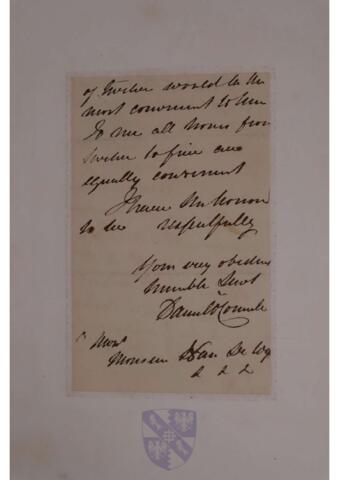 of twelve would be the
most convenient to him
To me all hours from
twelve to five are
equally convenient
I have the honor
to be respectfully
Your very obedient
humble Servt
Daniel O'Connell
Monsieur Van De Wy
& & &